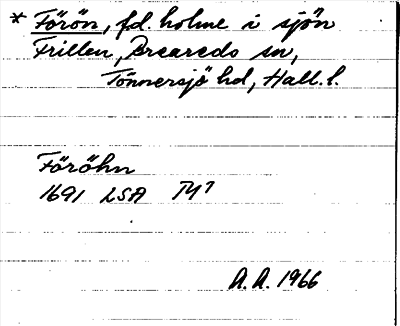 * Förön, f.d. holme i sjön
Frillen, Breareds sn,
Tönnersjö hd, Hall. l.
Föröhn
1691 LSA T47
A. A. 1966